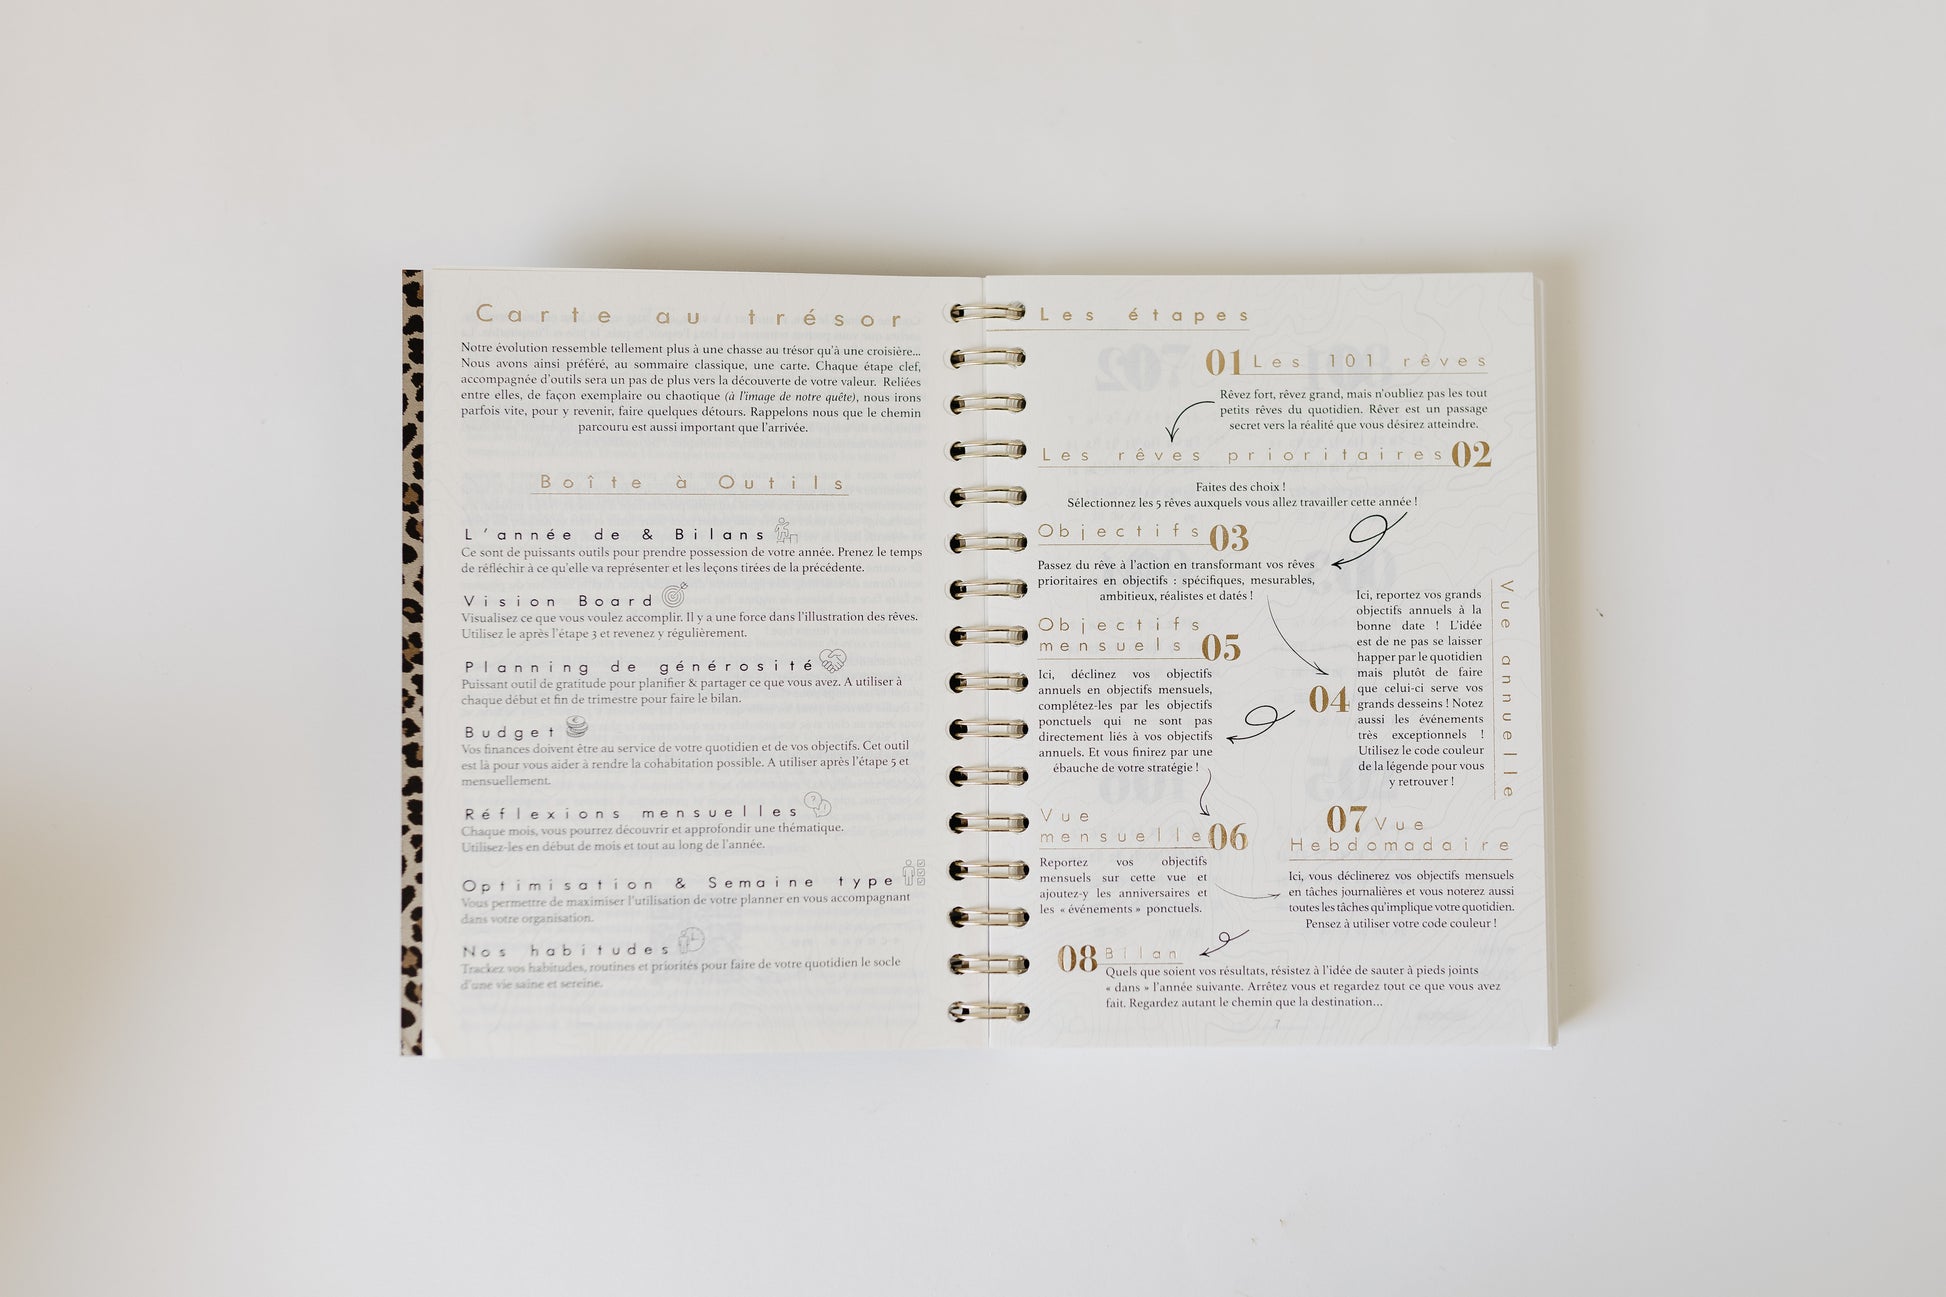 Carte au trésor
Notre évolution ressemble tellement plus à une chasse au trésor qu'à une croisière...
Nous avons ainsi préféré, au sommaire classique, une carte. Chaque étape clef,
accompagnée d'outils sera un pas de plus vers la découverte de votre valeur. Reliées
entre elles, de façon exemplaire ou chaotique (à l'image de notre quête), nous irons
parfois vite, pour y revenir, faire quelques détours. Rappelons nous que le chemin
parcouru est aussi important que l'arrivée.
Boîte à Outils
L'année de & Bilans
Ce sont de puissants outils pour prendre possession de votre année. Prenez le temps
de réfléchir à ce qu'elle va représenter et les leçons tirées de la précédente.
Vision Board
Visualisez ce que vous voulez accomplir. Il y a une force dans l'illustration des rêves.
Utilisez le après l'étape 3 et revenez y régulièrement.
Planning de générosité
Puissant outil de gratitude pour planifier & partager ce que vous avez. A utiliser à
chaque début et fin de trimestre pour faire le bilan.
Budget
Vos finances doivent être au service de votre quotidien et de vos objectifs. Cet outil
est là pour vous aider à rendre la cohabitation possible. A utiliser après l'étape 5 et
mensuellement.
Réflexions mensuelles
Chaque mois, vous pourrez découvrir et approfondir une thématique.
Utilisez-les en début de mois et tout au long de l'année.
Optimisation & Semaine type
Vous permettre de maximiser l'utilisation de votre planner en vous accompagnant
dans votre organisation.
Nos habitudes
Trackez vos habitudes, routines et priorités pour faire de votre quotidien le socle
d'une vie saine et sereine.
Les étapes
01 Les 101 rêves
Rêvez fort, rêvez grand, mais n'oubliez pas les tout
petits rêves du quotidien. Rêver est un passage
secret vers la réalité que vous désirez atteindre.
Les rêves prioritaires 02
Faites des choix !
Sélectionnez les 5 rêves auxquels vous allez travailler cette année !
Objectifs 03
Passez du rêve à l'action en transformant vos rêves
prioritaires en objectifs : spécifiques, mesurables,
ambitieux, réalistes et datés !
04
Vue annuelle
Ici, reportez vos grands
objectifs annuels à la
bonne date ! L'idée
est de ne pas se laisser
happer par le quotidien
mais plutôt de faire
que celui-ci serve vos
grands desseins ! Notez
aussi les événements
très exceptionnels !
Utilisez le code couleur
de la légende pour vous
y retrouver !
Objectifs
mensuels 05
Ici, déclinez vos objectifs
annuels en objectifs mensuels,
complétez-les par les objectifs
ponctuels qui ne sont pas
directement liés à vos objectifs
annuels. Et vous finirez par une
ébauche de votre stratégie !
Vue
mensuelle 06
Reportez vos objectifs
mensuels sur cette vue et
ajoutez-y les anniversaires et
les « événements » ponctuels.
07 Vue
Hebdomadaire
Ici, vous déclinerez vos objectifs mensuels
en tâches journalières et vous noterez aussi
toutes les tâches qu'implique votre quotidien.
Pensez à utiliser votre code couleur !
08 Bilan
Quels que soient vos résultats, résistez à l'idée de sauter à pieds joints
« dans » l'année suivante. Arrêtez vous et regardez tout ce que vous avez
fait. Regardez autant le chemin que la destination...
7